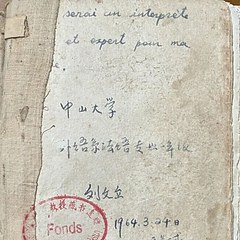 serai un interprète
et expert pour ma
中山大学
外语系法语专业
刘文立
1964.3.24日
Fonds